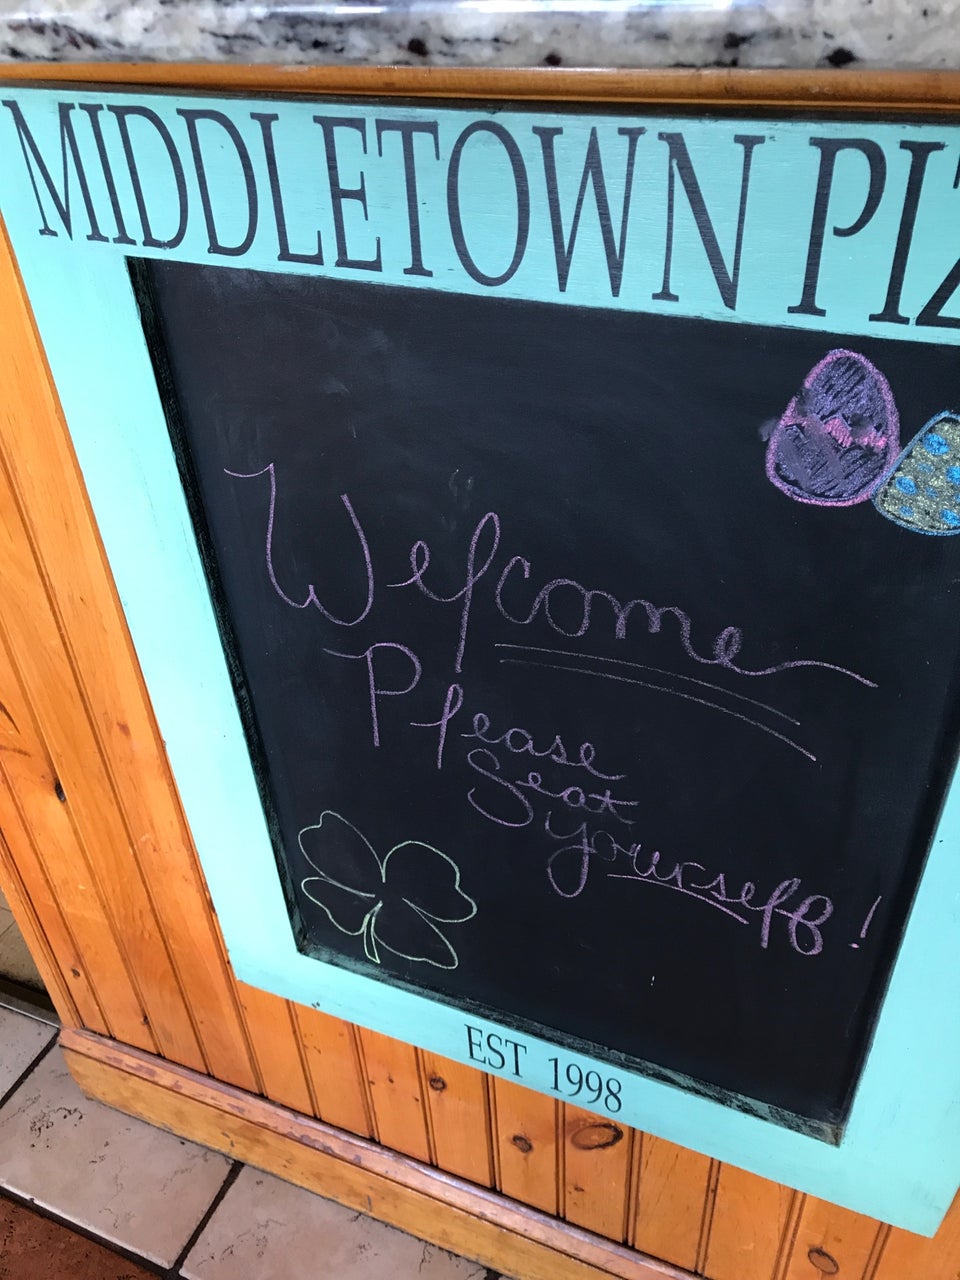 MIDDLETOWN PIZ
Welcome
Please
Seat
yourself!
EST 1998